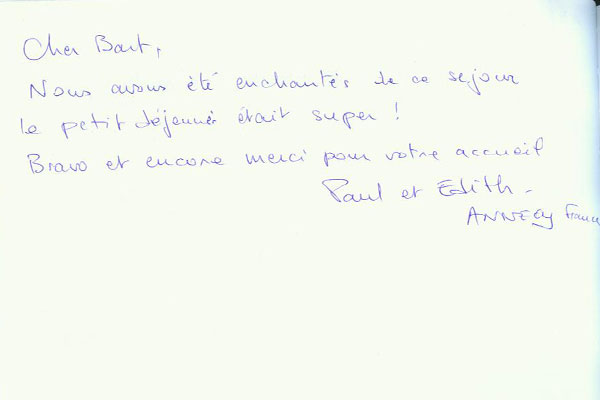 Cher Bart,
Nous avons été enchantés de ce sejour
le petit déjeuner était super !
Bravo et encore merci pour votre accueil
Paul et Edith -
ANNECY France